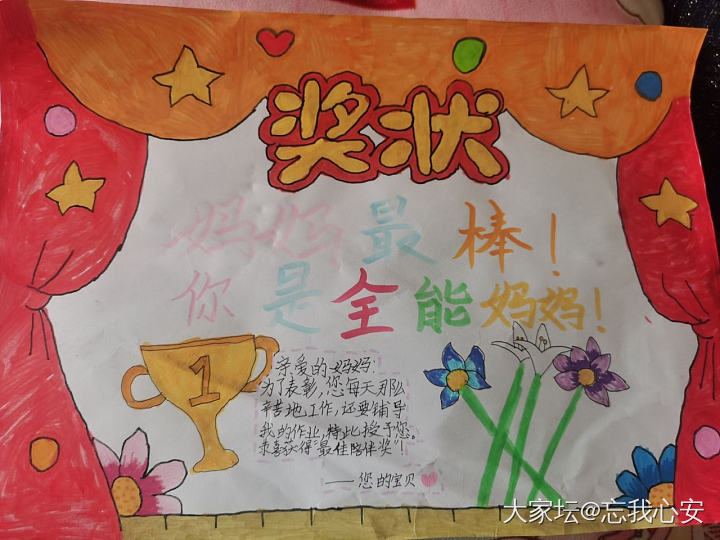 奖状
妈妈最棒！
你是全能妈妈！
1
亲爱的妈妈：
为了表彰，您每天那么
辛苦地工作，还要铺导
我的作业，特此授予您。
恭喜获得"最佳陪伴奖"！
——您的宝贝
大家坛@忘我心安